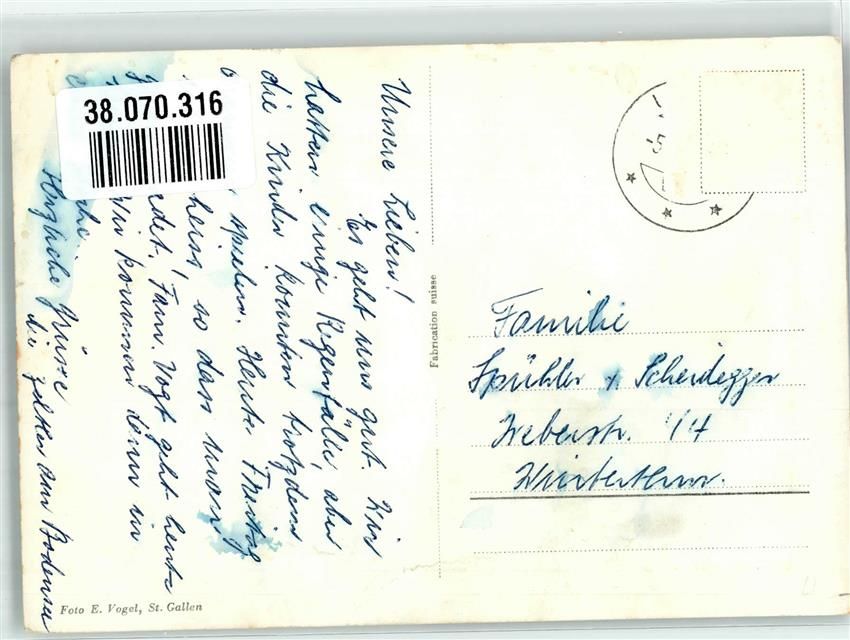 38.070.316
Unsere Lieben!
Es geht uns gut. Wir
hatten einige Regenfälle, aber
die Kinder konnten trotzdem
spielen. Heute Freitag
heiss, so dass man
badet. Fam. Vogt geht heute
Wir kommen dann in
Herzliche Grüsse
die Zeltler am Bodensee
Foto E. Vogel, St. Gallen
Fabrication suisse
Familie
Spühler + Scheidegger
Weberstr. 14
Winterthur.